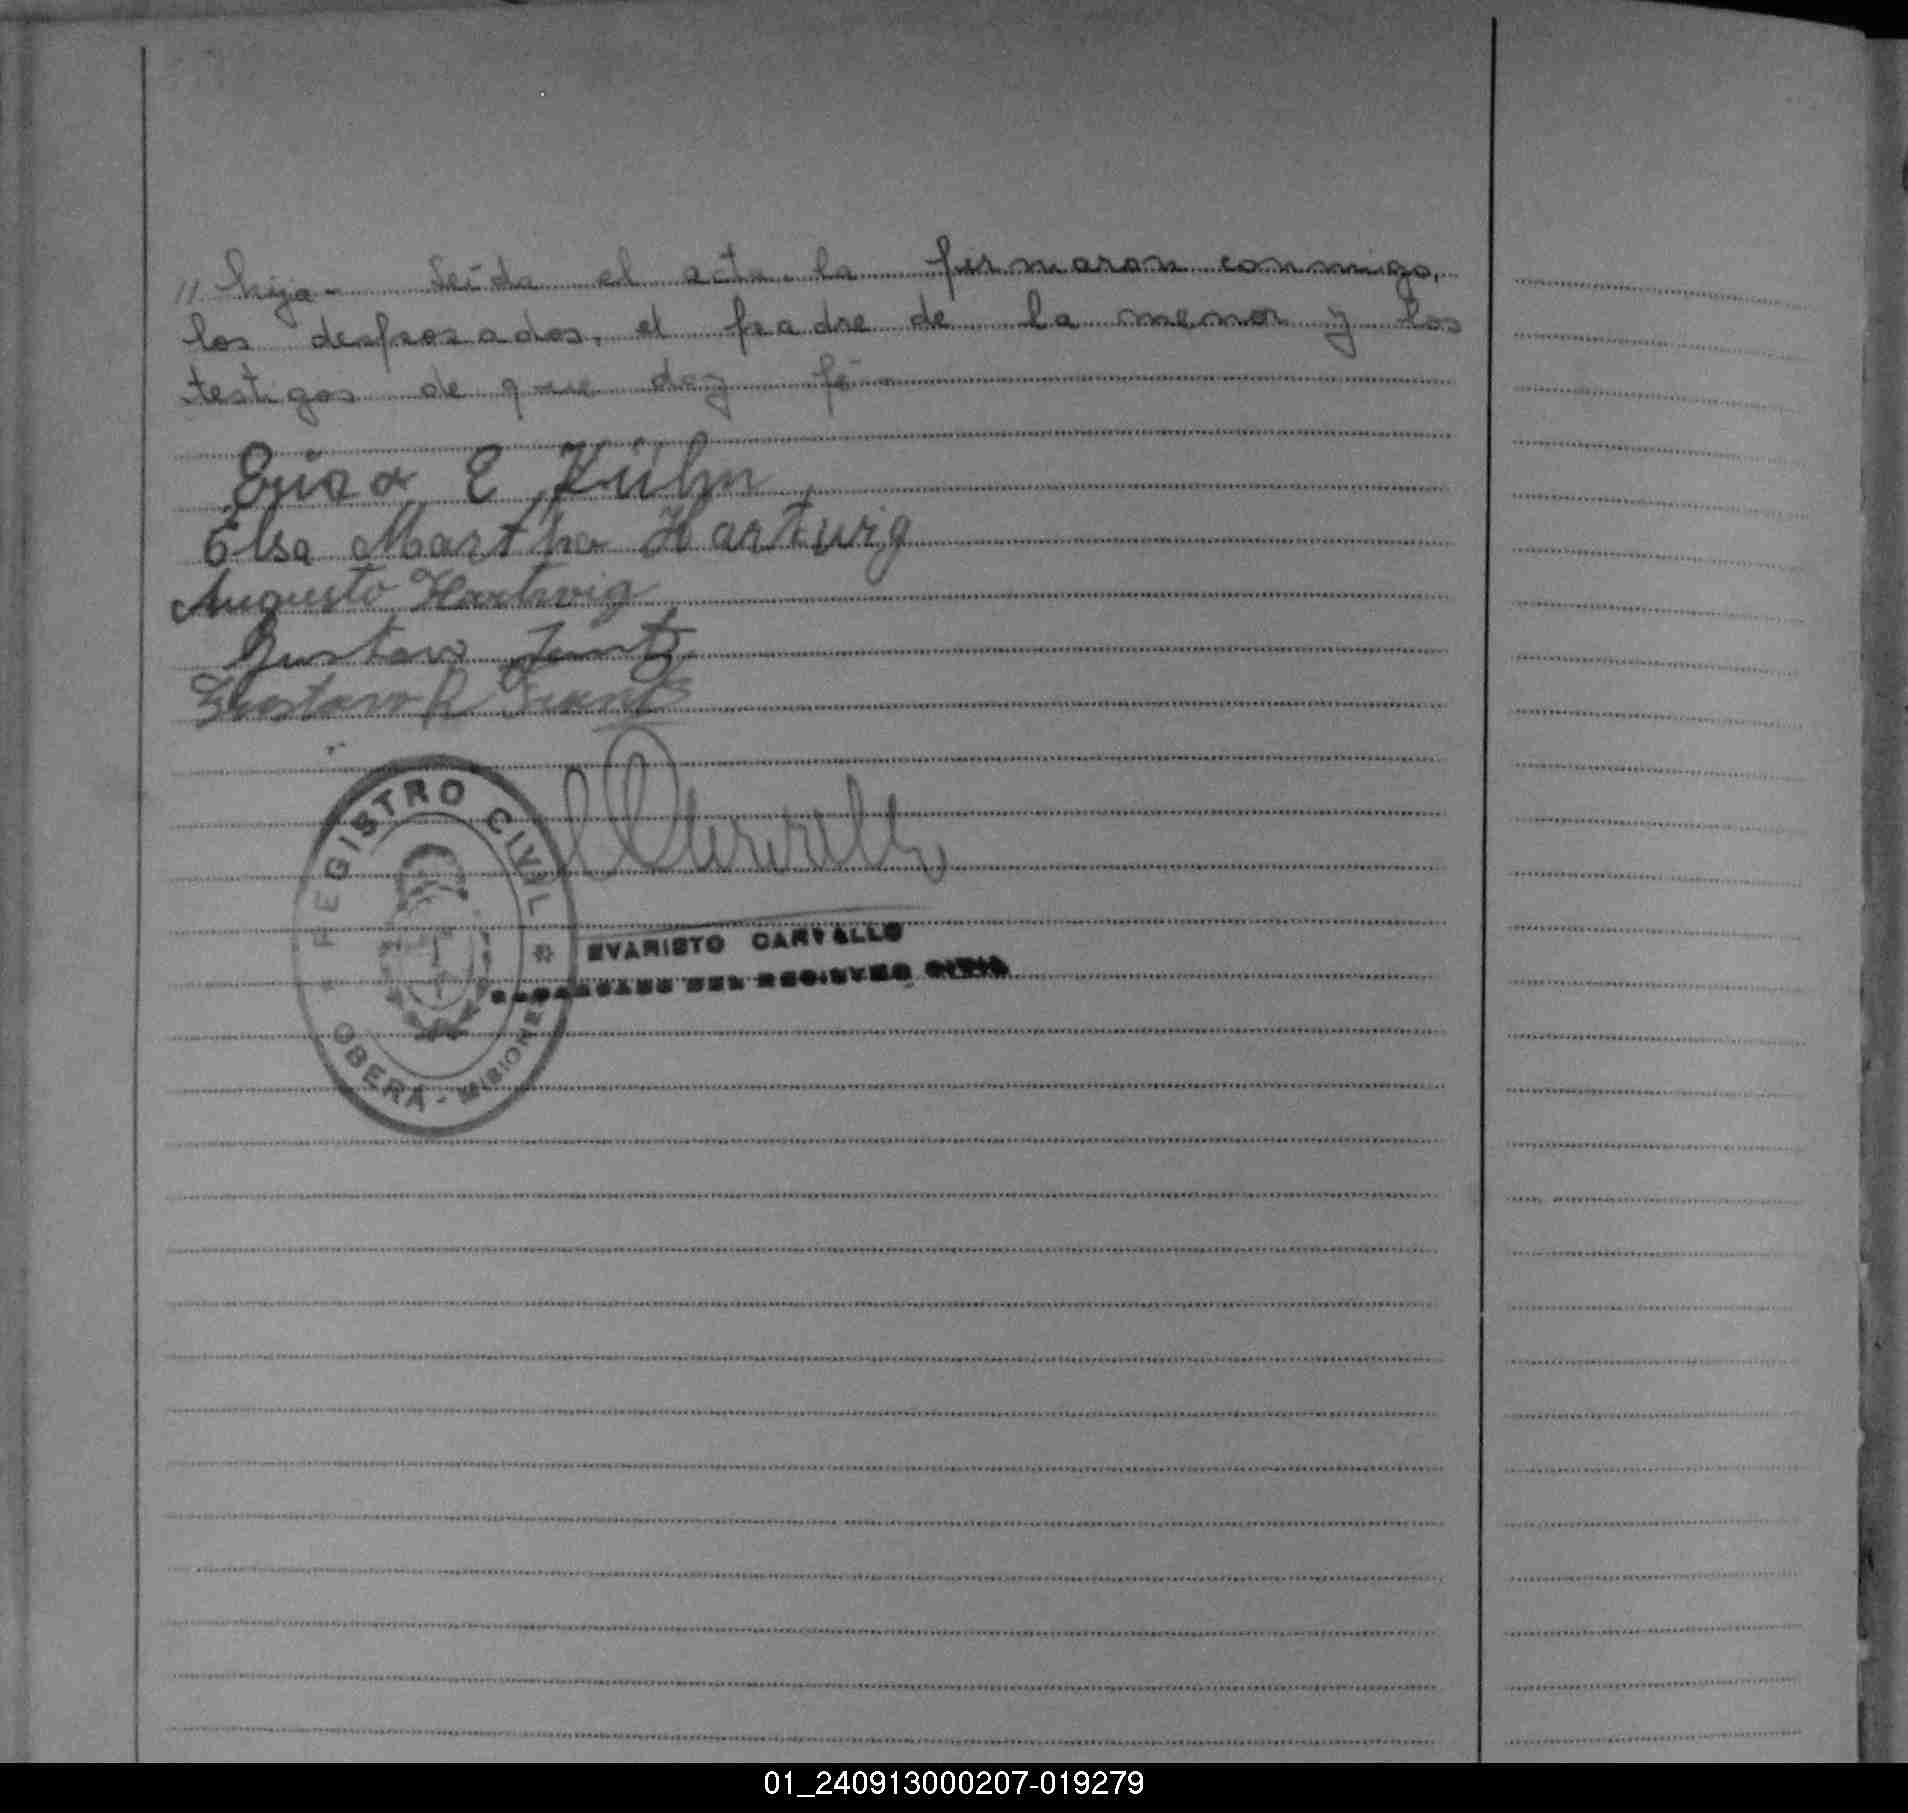 " hija.- Leída el acta la firmaron conmigo,
los desposados, el padre de la menor y los
testigos de que doy fé.-
Erica E Kühn
Elsa Martha Hartwig
Augusto Hartwig
Gustavo
Gustavo R
REGISTRO CIVIL
OBERÁ - MISIONES
EVARISTO CARVALLO
ENCARGADO DEL REGISTRO CIVIL
01_240913000207-019279